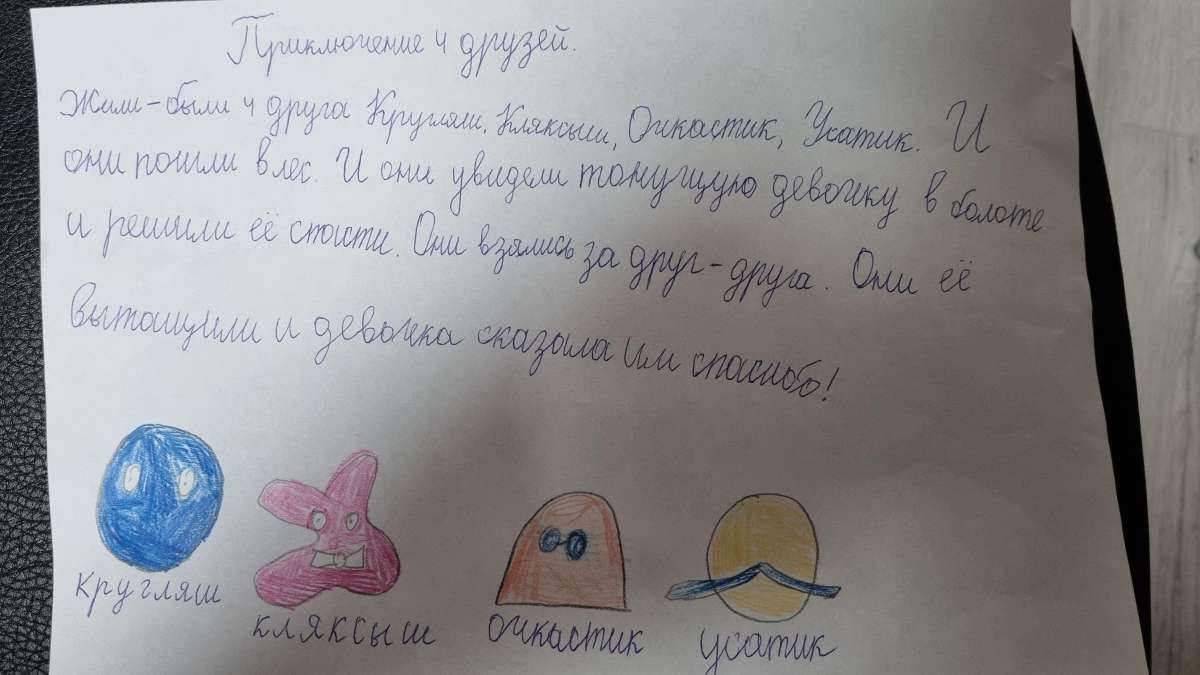 Приключение 4 друзей.
Жили-были 4 друга Кругляш, Кляксыш, Очкастик, Усатик. И
они пошли в лес. И они увидели тонущую девочку в болоте
и решили её спасти. Они взялись за друг-друга. Они её
вытащили и девочка сказала им спасибо!
кругляш кляксыш очкастик усатик